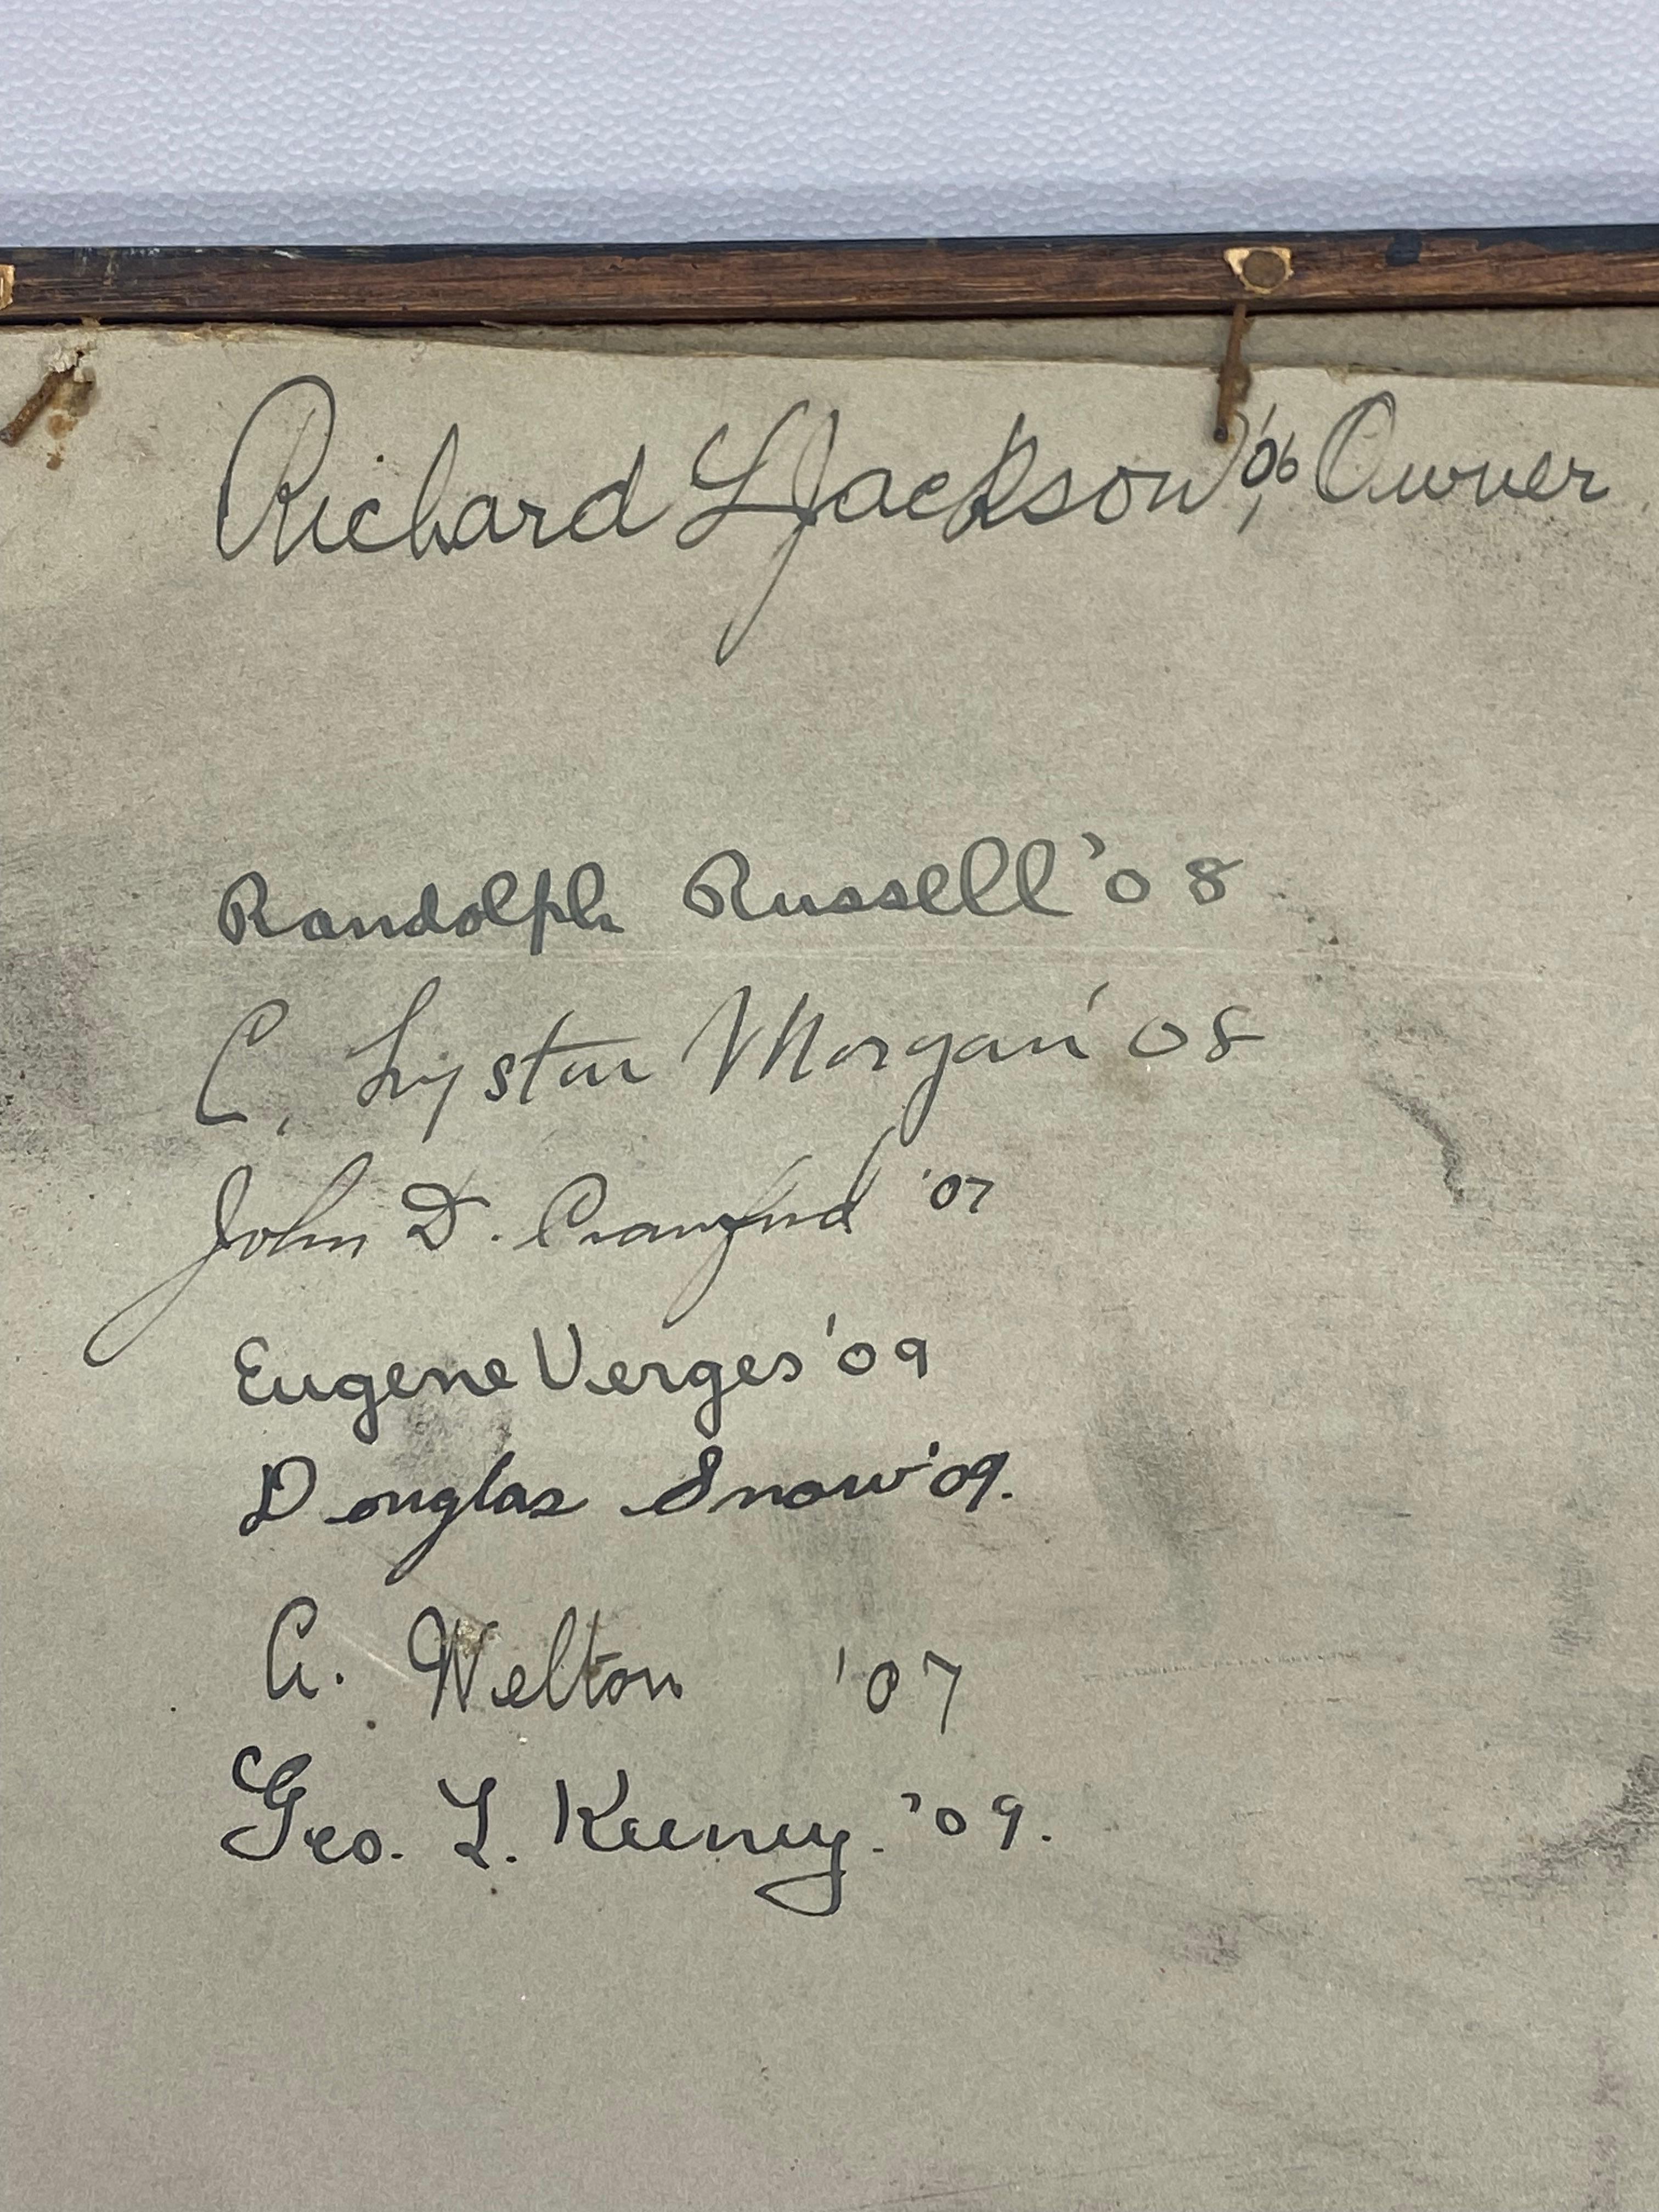 Richard L Jackson '06, Owner
Randolph Russell '08
C. Lyster Morgan '08
John D. Crawford '07
Eugene Verges '09
Douglas Snow '09.
A. Welton '07
Geo. L. Keeney. '09.